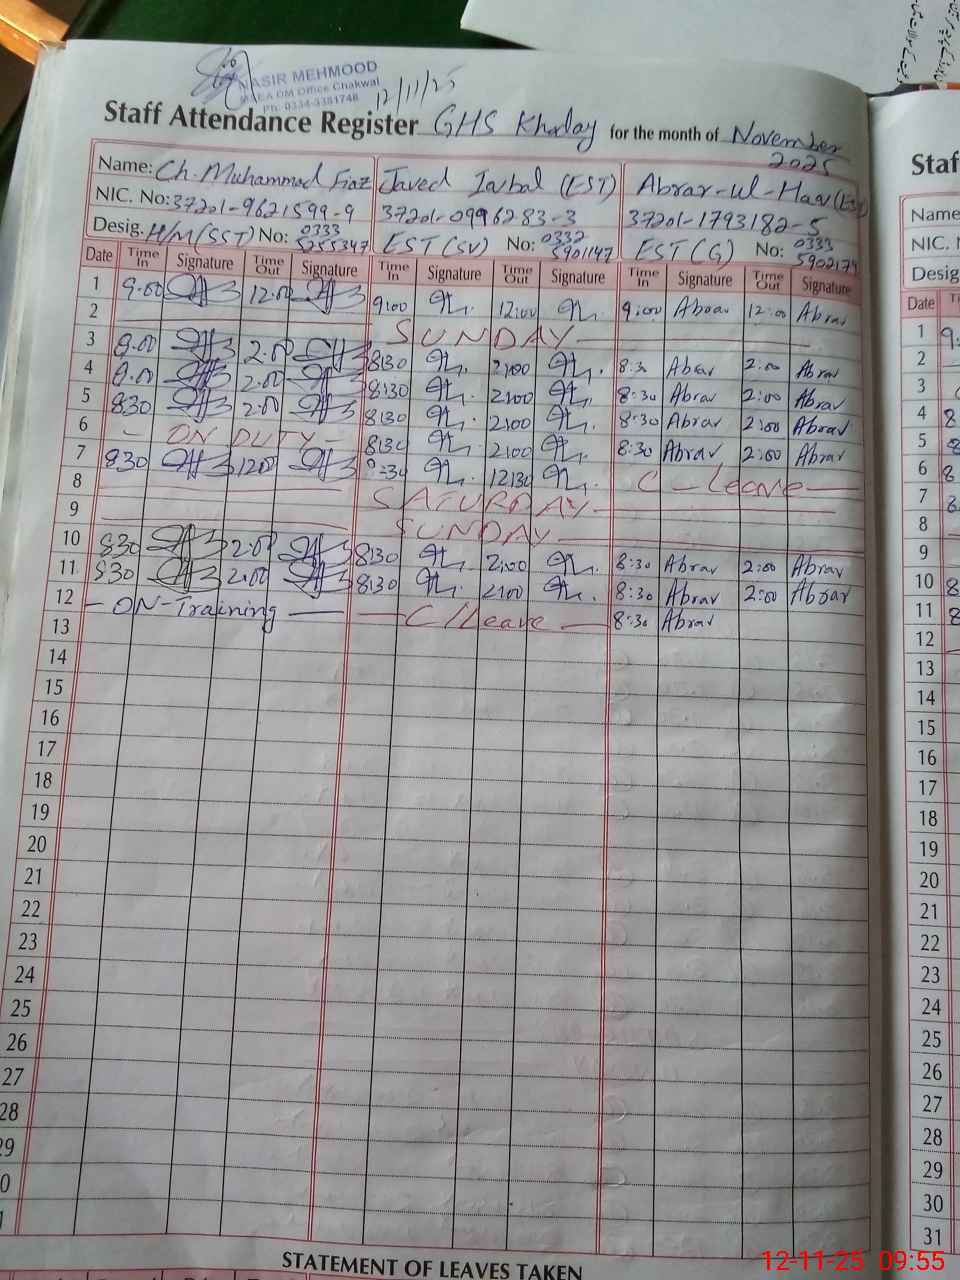 NASIR MEHMOOD
MEA DM Office Chakwal
Ph: 0334-3381748
12/11/25
Staff Attendance Register GHS Khoday for the month of November 2025
Name: Ch. Muhammad Fiaz Javed Iqbal (EST) Abrar-ul-Haq (EST)
NIC. No: 37201-9621599-9 37201-0996283-3 37201-1793182-5
Desig. H/M (SST) No: 0333 5255347 EST (SV) No: 0332 5901147 EST (G) No: 0333 5902174
Date Time In Signature Time Out Signature Time In Signature Time Out Signature Time In Signature Time Out Signature
1 9.00 12.00 9:00 12:00 9:00 Abrar 12:00 Abrar
2 SUNDAY
3 9.00 2.00 8:30 2:00 8:30 Abrar 2:00 Abrar
4 9.00 2.00 8:30 2:00 8:30 Abrar 2:00 Abrar
5 830 2.00 8:30 2:00 8:30 Abrar 2:00 Abrar
6 - ON DUTY - 8:30 2:00 8:30 Abrar 2:00 Abrar
7 830 1200 12:30 C - Leave
8 SATURDAY
9 SUNDAY
10 830 2.00 8:30 2:00 8:30 Abrar 2:00 Abrar
11 830 2.00 8:30 2:00 8:30 Abrar 2:00 Abrar
12 - ON-Training - C/Leave - 8:30 Abrar
13
14
15
16
17
18
19
20
21
22
23
24
25
26
27
28
29
0
STATEMENT OF LEAVES TAKEN
Staf
Name
NIC.
Desig
Date
1 9
2
3
4 8
5 8
6 8
7
8
9
10 8
11 8
12
13
14
15
16
17
18
19
20
21
22
23
24
25
26
27
28
29
30
31
12-11-25 09:55